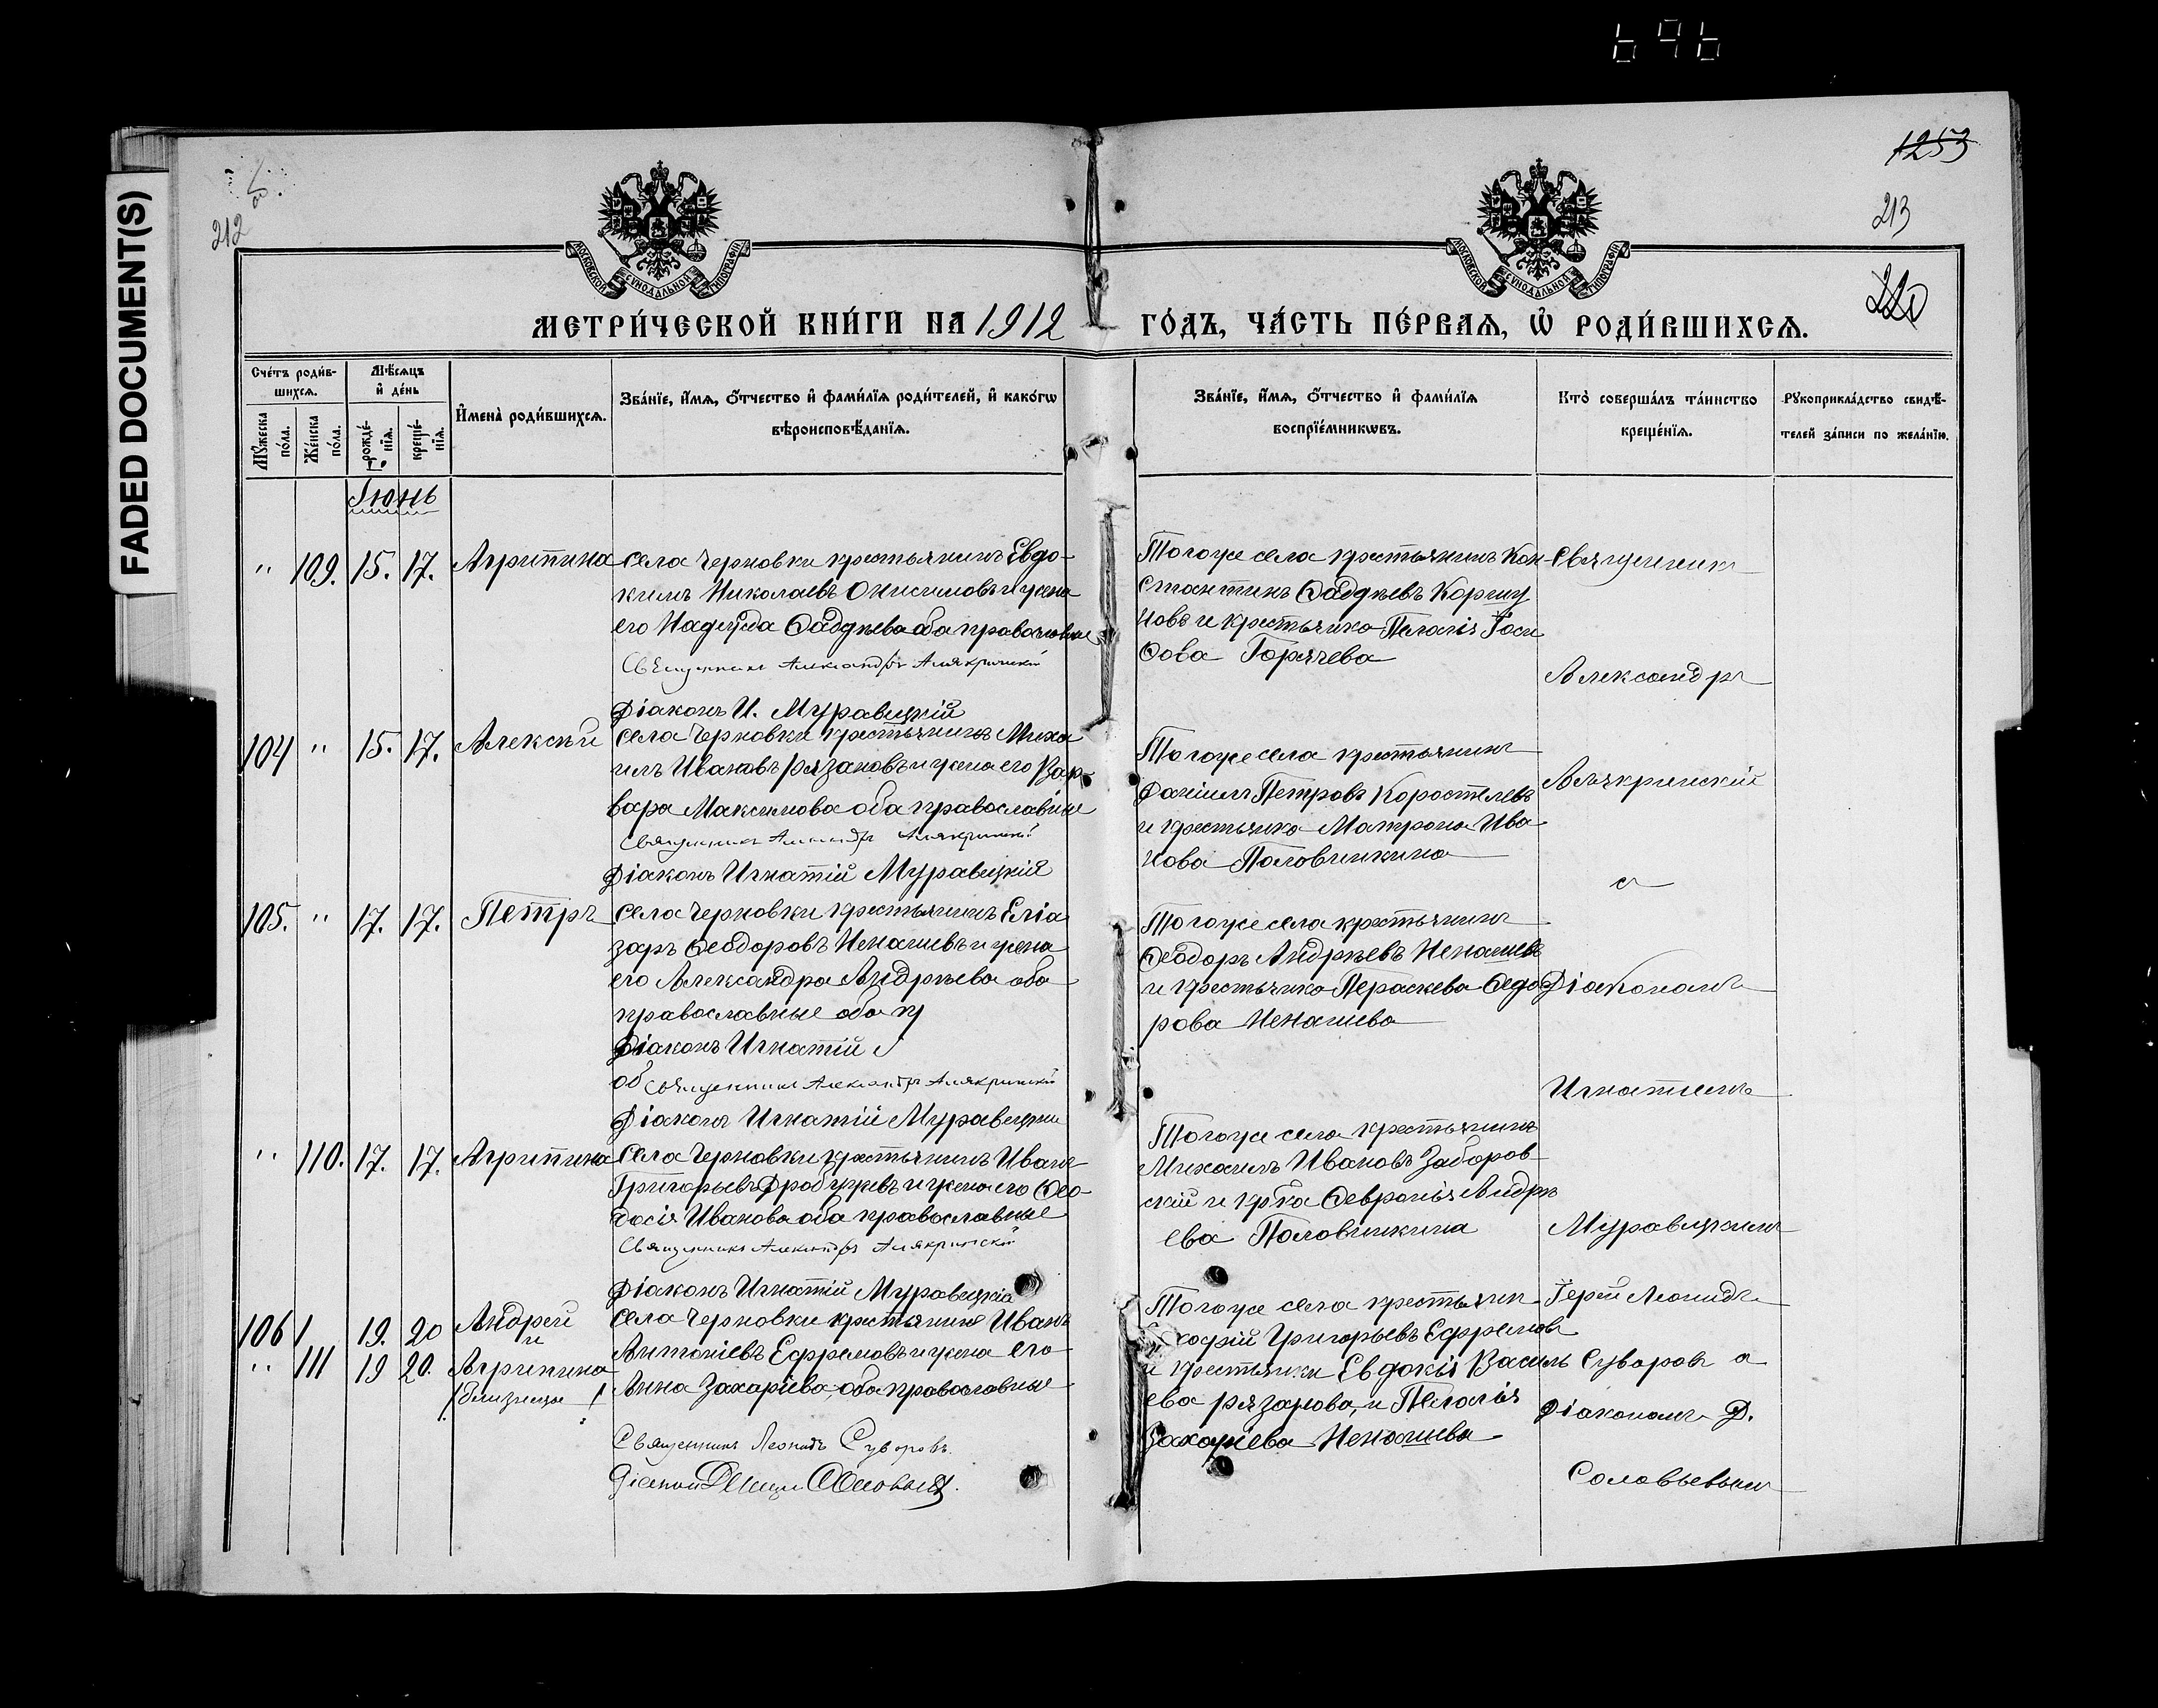 696
FADED DOCUMENT(S)
1253
212
213
220
МОСКОВСКОЙ СѴНОДАЛЬНОЙ ТИПОГРАФІИ
МОСКОВСКОЙ СѴНОДАЛЬНОЙ ТИПОГРАФІИ
МЕТРИ́ЧЕСКОЙ КНИ́ГИ НА 1912 ГО́ДЪ, ЧА́СТЬ ПЕ́РВАѦ, Ѡ҆ РОДИ́ВШИХСѦ.
Сче́тъ роди́в-
шихсѧ.
Мѣ́сѧцъ
и҆ де́нь
Мꙋ́жеска
по́ла.
Же́нска
по́ла.
рожде́-
нїѧ.
креще́-
нїѧ.
И҆мена̀ роди́вшихсѧ.
Зва́нїе, и҆́мѧ, ѻ҆́тчество и҆ фами́лїѧ роди́телей, и҆ како́гѡ
вѣроисповѣ́данїѧ.
Зва́нїе, и҆́мѧ, ѻ҆́тчество и҆ фами́лїѧ
воспрїе́мникѡвъ.
Кто̀ соверша́лъ та́инство
креще́нїѧ.
Рꙋкоприкла́дство свидѣ́-
телей за́писи по жела́нїю.
Іюнь
" 109. 15. 17. Агрипина
села Черновки крестьянинъ Евдо-
кимъ Николаевъ Онисимовъ и жена
его Надежда Фаддѣева оба православные
Священникъ Александръ Алякринскій
Діаконъ И. Муравицкій
Того же села крестьянинъ Кон-
стантинъ Фаддѣевъ Коршу
новъ и крестьянка Пелагія Іоси
фова Горячева
104 " 15. 17. Алексѣй
села Черновки крестьянинъ Миха
илъ Ивановъ Рязановъ и жена его Вар
вара Максимова оба православные
Священникъ Александръ Алякринскій
Діаконъ Игнатій Муравицкій
Того же села крестьянинъ
Даніилъ Петровъ Коростелевъ
и крестьянка Матрона Ива
нова Половинкина
105. " 17. 17. Петръ
села Черновки крестьянинъ Еліа
заръ Феодоровъ Ненашевъ и жена
его Александра Андрѣева оба
православные оба пр
Діаконъ Игнатій
об Священникъ Александръ Алякринскій
Діаконъ Игнатій Муравицкій
Того же села крестьянинъ
Феодоръ Андрѣевъ Ненашевъ
и крестьянка Параскева Федо
рова Ненашева
" 110. 17. 17. Агрипина
села Черновки крестьянинъ Иванъ
Григорьевъ и жена его Фео-
досія Иванова оба православные
Священникъ Александръ Алякринскій
Діаконъ Игнатій Муравицкій
Того же села крестьянинъ
Михаилъ Ивановъ Заборов
скій и кр-ка Февронія Андрѣ
ева Половинкина
106 19. 20 Андрей
и
" 111 19 20. Агрипина
/близнецы/
села Черновки крестьянинъ Иванъ
Антоніевъ Ефремовъ и жена его
Анна Захаріева, оба православные
Священникъ Леонидъ Суворовъ.
Того же села крестьянин
Григорьевъ Ефремовъ
и крестьянки Евдокія Василь
ева Рязанова, и Пелагія
Захаріева Ненашева
Священникъ
Александръ
Алякринскій
съ
Діакономъ
Игнатіемъ
Муравицкимъ
Іерей Леонидъ
Суворовъ с
Діакономъ Д.
Соловьевымъ